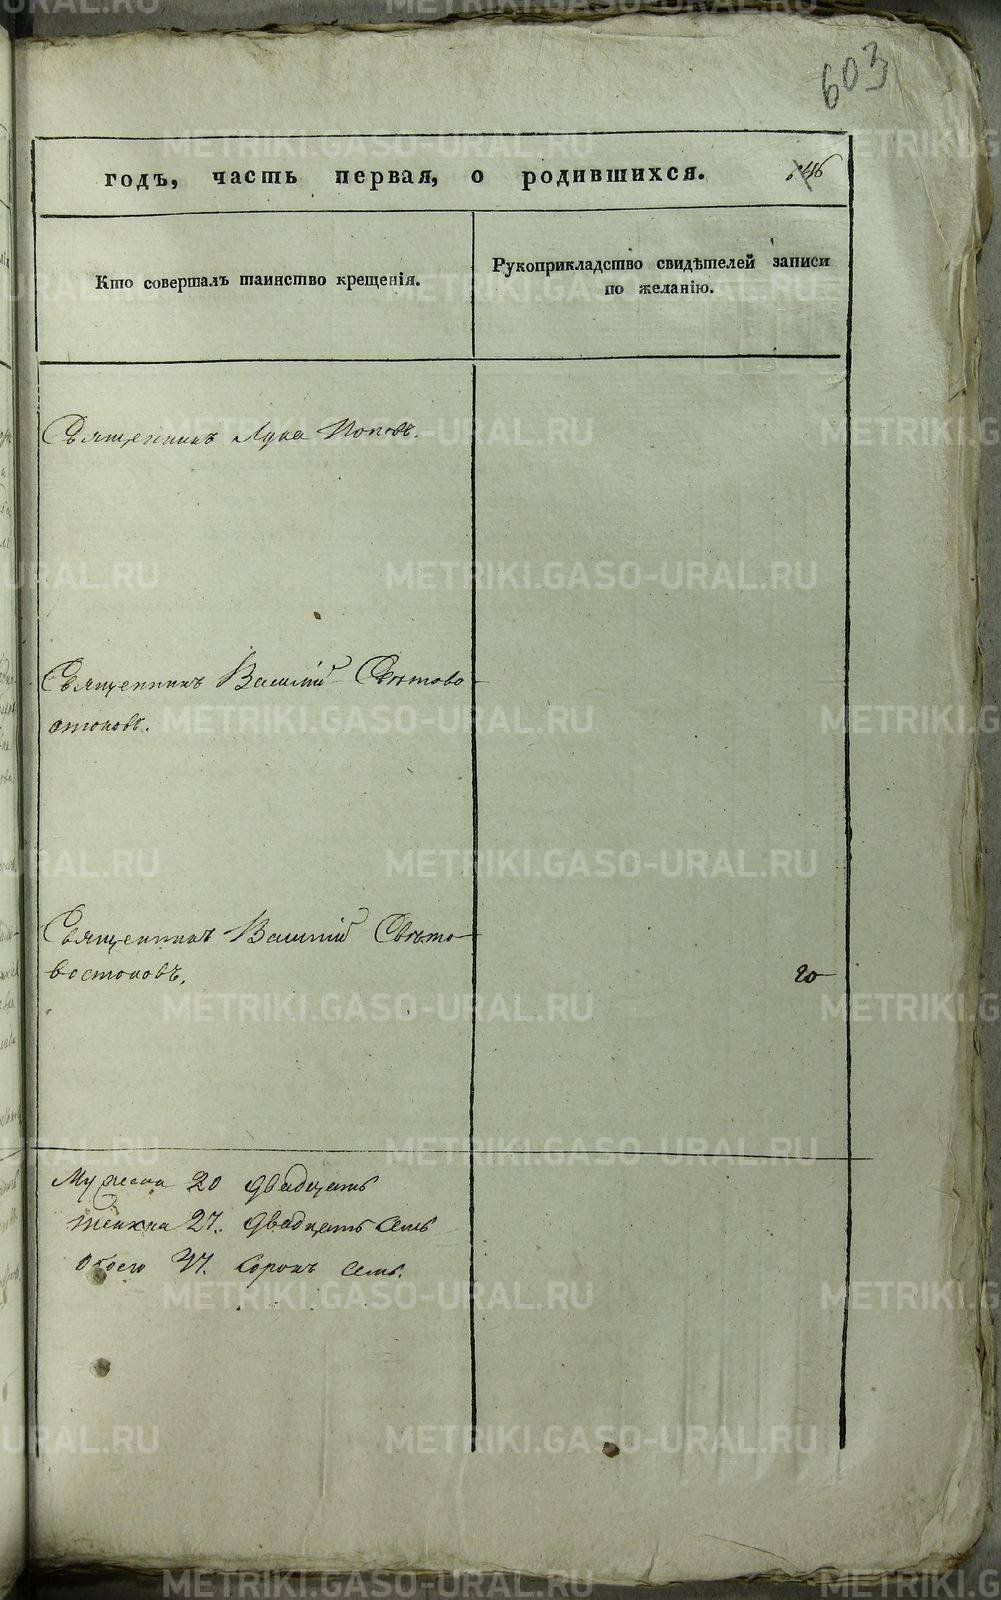 603
годъ, часть первая, о родившихся.
Кто совершалъ таинство крещенія.
Рукоприкладство свидѣтелей записи
по желанію.
Священникъ Лука Поповъ.
Священникъ Василій Свѣтово
стоковъ.
Священникъ Василій Свѣто
востоковъ.
20
Мужеска 20 двадцать
Женска 27. двадцать семь
обоего 47. сорокъ семь.
METRIKI.GASO-URAL.RU